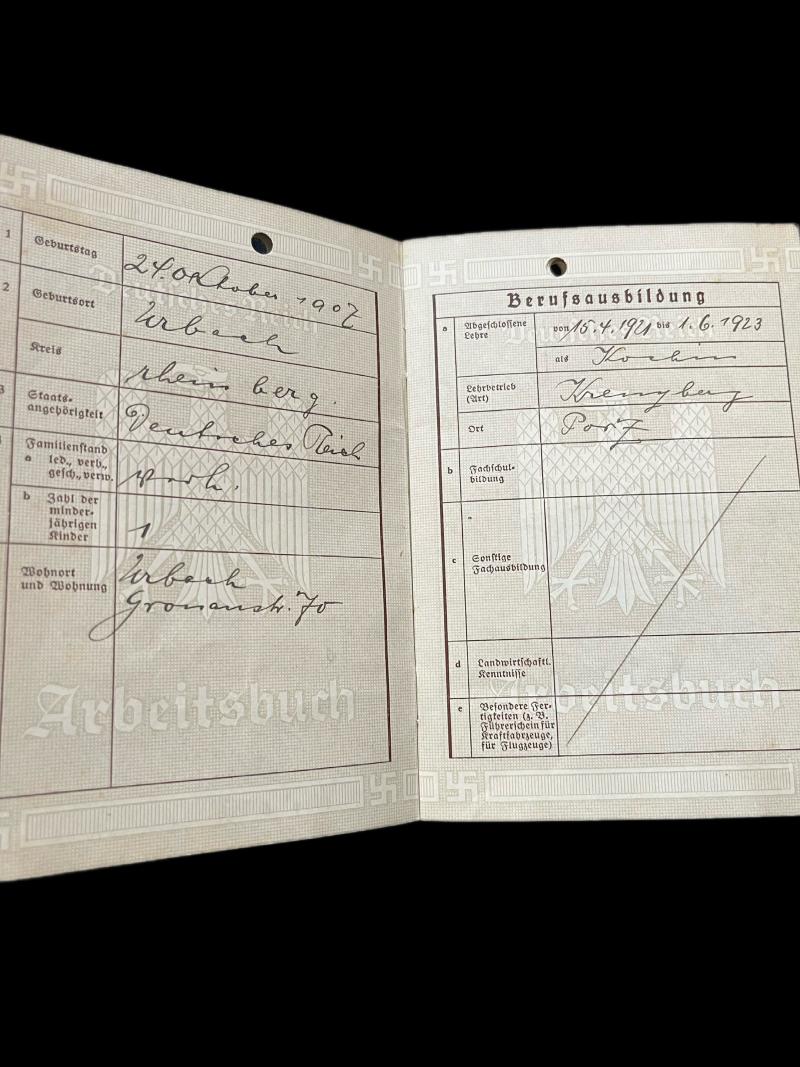 1 Geburtstag 24. Oktober 1907
2 Geburtsort Urbach
Kreis rhein berg.
3 Staats-
angehörigkeit Deutsches Reich
Familienstand
a led., verh.,
gesch., verw. verh.
b Zahl der
minder-
jährigen
Kinder 1
Wohnort
und Wohnung
Urbach
Gronaustr. 70
Deutsches Reich
Arbeitsbuch
Berufsausbildung
a Abgeschlossene
Lehre
von 15.4.1921 bis 1.6.1923
als
Lehrbetrieb
(Art)
Ort Porz
b Fachschul-
bildung
c Sonstige
Fachausbildung
d Landwirtschaftl.
Kenntnisse
e Besondere Fer-
tigkeiten (z. B.
Führerschein für
Kraftfahrzeuge,
für Flugzeuge)
Deutsches Reich
Arbeitsbuch